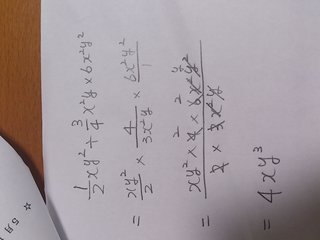 1/2 xy² ÷ 3/4 x²y × 6x²y²
= xy²/2 × 4/3x²y × 6x²y²/1
= xy² × 4 × 6x²y² / 2 × 3x²y
= 4xy³
☆ 5月